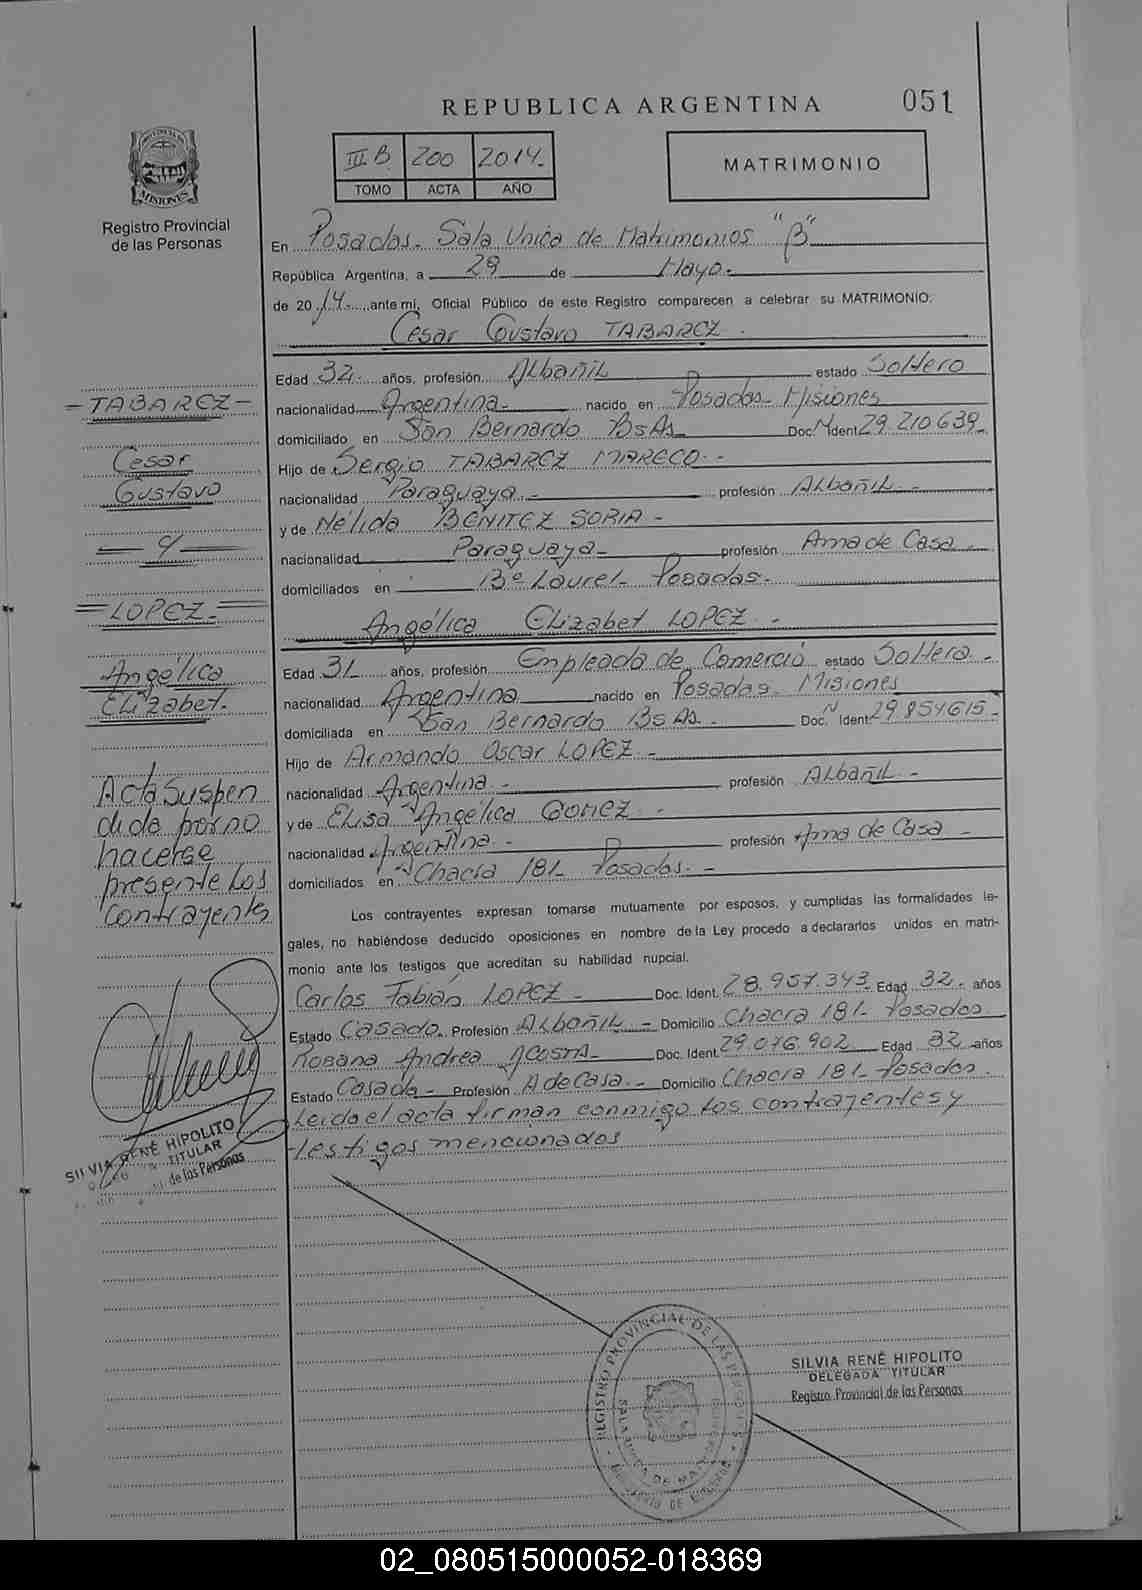 REPUBLICA ARGENTINA
051
III B 200 2014.
TOMO ACTA AÑO
MATRIMONIO
PROVINCIA DE
MISIONES
Registro Provincial
de las Personas
En Posadas. Sala Unica de Matrimonios "B"
República Argentina, a 29 de Mayo.
de 2014. ante mí, Oficial Público de este Registro comparecen a celebrar su MATRIMONIO:
Cesar Gustavo TABAREZ.
Edad 32. años, profesión Albañil estado Soltero
nacionalidad Argentina. nacido en Posadas Misiones
domiciliado en San Bernardo BsAs Doc. N Ident 29.210.639.
Hijo de Sergio TABAREZ MARECO.
nacionalidad Paraguaya. profesión Albañil.
y de Nélida BENITEZ SORIA -
nacionalidad Paraguaya profesión Ama de Casa.
domiciliados en Bº Laurel. Posadas.
Angélica Elizabet LOPEZ. -
Edad 31 años, profesión Empleada de Comercio estado Soltera -
nacionalidad Argentina nacido en Posadas. Misiones
domiciliada en San Bernardo BsAs. Doc. N Ident 29.854615.
Hijo de Armando Oscar LOPEZ. -
nacionalidad Argentina. - profesión Albañil. -
y de Elisa Angélica GOMEZ. -
nacionalidad Argentina. - profesión Ama de Casa -
domiciliados en Chacra 181. Posadas. -
Los contrayentes expresan tomarse mutuamente por esposos, y cumplidas las formalidades le-
gales, no habiéndose deducido oposiciones en nombre de la Ley procedo a declararlos unidos en matri-
monio ante los testigos que acreditan su habilidad nupcial.
Carlos Fabián LOPEZ - Doc. Ident. 28.957.343. Edad 32. años
Estado Casado. Profesión Albañil - Domicilio Chacra 181. Posadas
Rosana Andrea ACOSTA Doc. Ident. 29.076.902 Edad 32 años
Estado Casada - Profesión A de Casa. - Domicilio Chacra 181- Posadas.
Leida el acta firman conmigo los contrayentes y
testigos mencionados
- TABAREZ -
Cesar
Gustavo
LOPEZ.
Angélica
Elizabet.
Acta Suspen
dida por no
hacerse
presente los
contrayentes
SILVIA RENÉ HIPOLITO
TITULAR
de las Personas
REGISTRO PROVINCIAL DE LAS PERSONAS
SILVIA RENÉ HIPOLITO
DELEGADA TITULAR
Registro Provincial de las Personas
02_080515000052-018369